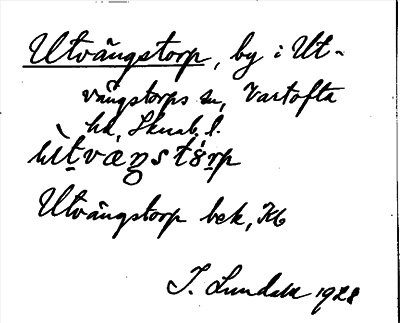 Utvängstorp, by i Ut-
vängstorps sn, Vartofta
hd, Skarab. l.
Utvängstorp bek, Kb
I. Lundahl 1928